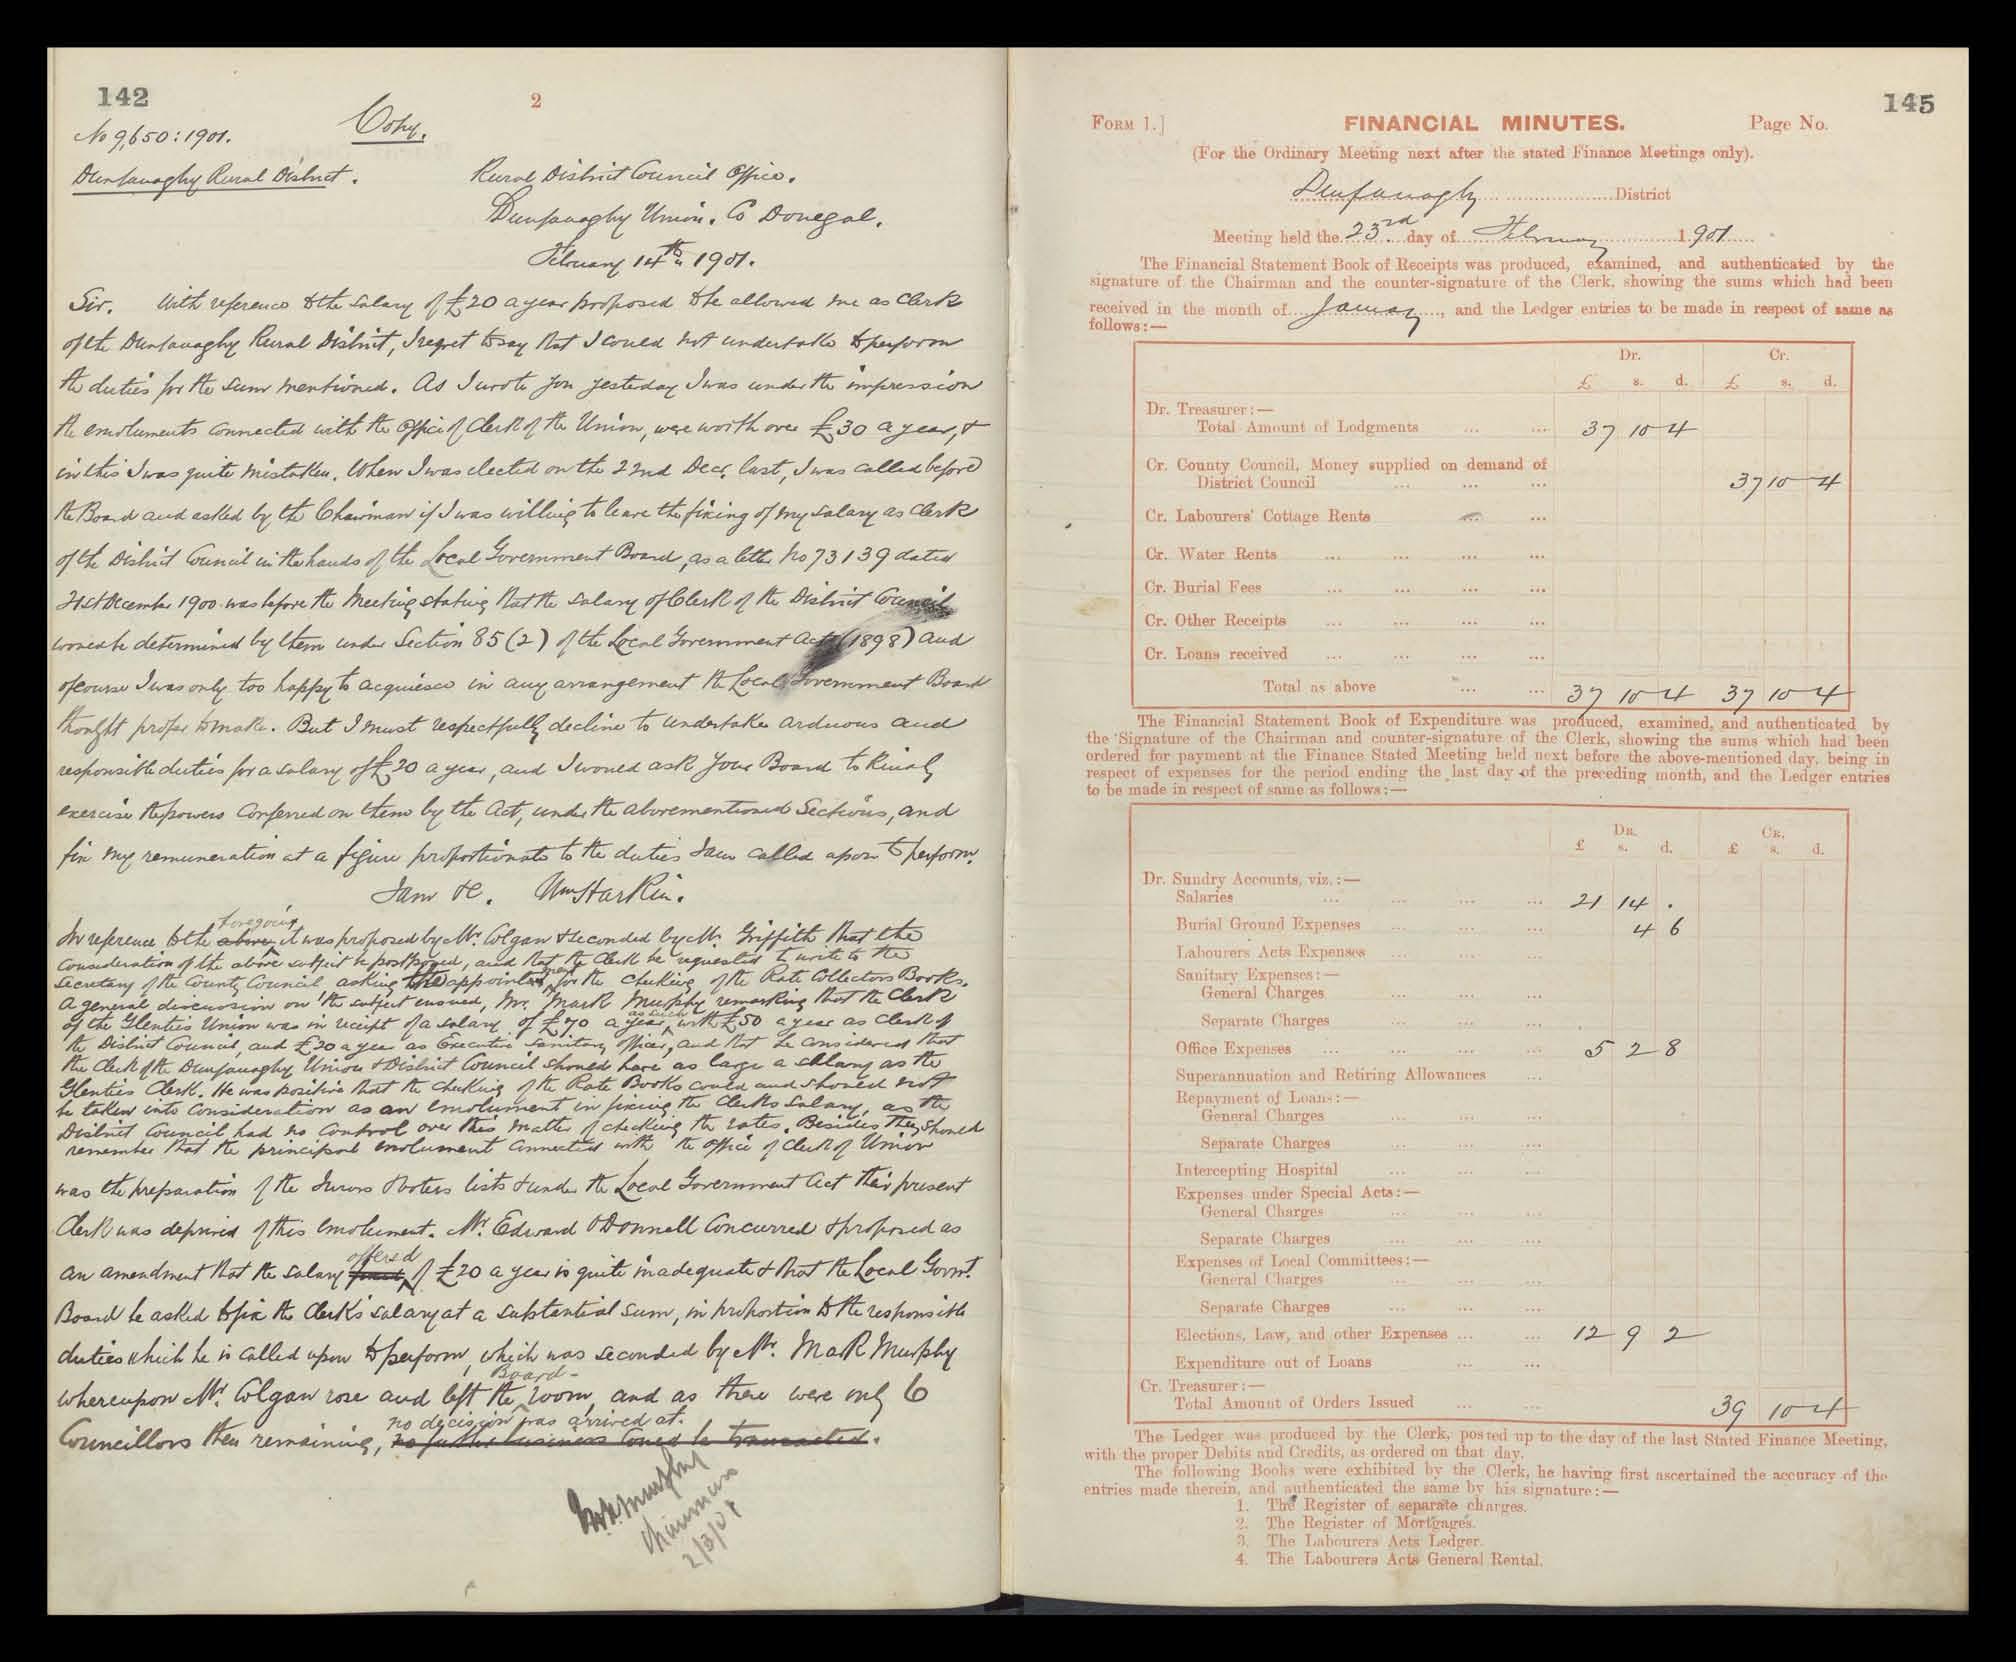 142
2
No 9,650:1901.
Copy.
Dunfanaghy Rural District.
Rural District Council Office.
Dunfanaghy Union. Co Donegal.
February 14th 1901.
Sir. With reference to the salary of £20 a year proposed to be allowed me as Clerk
of the Dunfanaghy Rural District, I regret to say that I could not undertake to perform
the duties for the sum mentioned. As I wrote you yesterday I was under the impression
the emoluments connected with the Office of Clerk of the Union, were worth over £30 a year, &
in this I was quite mistaken. When I was elected on the 22nd Decr. last, I was called before
the Board and asked by the Chairman if I was willing to leave the fixing of my salary as Clerk
of the District Council in the hands of the Local Government Board, as a letter No 73139 dated
21st December 1900 was before the Meeting stating that the salary of Clerk of the District Council
would be determined by them under Section 85 (2) of the Local Government Act (1898) and
of course I was only too happy to acquiesce in any arrangement the Local Government Board
thought proper to make. But I must respectfully decline to undertake arduous and
responsible duties for a salary of £20 a year, and I would ask your Board to kindly
exercise the powers conferred on them by the Act, under the abovementioned Sections, and
fix my remuneration at a figure proportionate to the duties I am called upon to perform.
I am &c. Wm Harkin.
foregoing
In reference to the above it was proposed by Mr. Colgan & seconded by Mr. Griffith that the
consideration of the above subject be postponed, and that the Clerk be requested to write to the
Secretary of the County Council asking the appointment for the checking of the Rate Collectors Books.
A general discussion on the subject ensued, Mr. Mark Murphy remarking that the Clerk
of the Glenties Union was in receipt of a salary of £70 a year as such, with £50 a year as Clerk of
the District Council, and £20 a year as Executive Sanitary Officer, and that he considered that
the Clerk of the Dunfanaghy Union & District Council should have as large a salary as the
Glenties Clerk. He was positive that the checking of the Rate Books could and should not
be taken into consideration as an emolument in fixing the Clerks salary, as the
District Council had no control over this matter of checking the rates. Besides they should
remember that the principal emolument connected with the office of Clerk of Union
was the preparation of the Jurors & voters lists & under the Local Government Act their present
Clerk was deprived of this emolument. Mr. Edward O'Donnell concurred & proposed as
offered
an amendment that the salary of £20 a year is quite inadequate & that the Local Govmt.
Board be asked to fix the Clerk's salary at a substantial sum, in proportion to the responsible
duties which he is called upon to perform, which was seconded by Mr. Mark Murphy
Board-
whereupon Mr. Colgan rose and left the room, and as there were only 6
no decision was arrived at.
Councillors then remaining, no further business could be transacted.
Murphy
Chairman
2/3/01
145
FORM 1.]
FINANCIAL MINUTES.
Page No.
(For the Ordinary Meeting next after the stated Finance Meetings only).
Dunfanaghy District
Meeting held the 23rd day of February 1901
The Financial Statement Book of Receipts was produced, examined, and authenticated by the
signature of the Chairman and the counter-signature of the Clerk, showing the sums which had been
received in the month of January, and the Ledger entries to be made in respect of same as
follows:—
Dr. Cr.
£ s. d. £ s. d.
Dr. Treasurer:—
Total Amount of Lodgments ... ... 37 10 4
Cr. County Council, Money supplied on demand of
District Council ... ... ... 37 10 4
Cr. Labourers' Cottage Rents ... ...
Cr. Water Rents ... ... ... ...
Cr. Burial Fees ... ... ... ...
Cr. Other Receipts ... ... ... ...
Cr. Loans received ... ... ... ...
Total as above ... ... 37 10 4 37 10 4
The Financial Statement Book of Expenditure was produced, examined, and authenticated by
the Signature of the Chairman and counter-signature of the Clerk, showing the sums which had been
ordered for payment at the Finance Stated Meeting held next before the above-mentioned day, being in
respect of expenses for the period ending the last day of the preceding month, and the Ledger entries
to be made in respect of same as follows:—
DR. CR.
£ s. d. £ s. d.
Dr. Sundry Accounts, viz.:—
Salaries ... ... ... ... 21 14 .
Burial Ground Expenses ... ... ... 4 6
Labourers Acts Expenses ... ... ...
Sanitary Expenses:—
General Charges ... ... ...
Separate Charges ... ... ...
Office Expenses ... ... ... ... 5 2 8
Superannuation and Retiring Allowances ...
Repayment of Loans:—
General Charges ... ... ...
Separate Charges ... ... ...
Intercepting Hospital ... ... ...
Expenses under Special Acts:—
General Charges ... ... ...
Separate Charges ... ... ...
Expenses of Local Committees:—
General Charges ... ... ...
Separate Charges ... ... ...
Elections, Law, and other Expenses ... ... 12 9 2
Expenditure out of Loans ... ...
Cr. Treasurer:—
Total Amount of Orders Issued ... ... 39 10 4
The Ledger was produced by the Clerk, posted up to the day of the last Stated Finance Meeting,
with the proper Debits and Credits, as ordered on that day.
The following Books were exhibited by the Clerk, he having first ascertained the accuracy of the
entries made therein, and authenticated the same by his signature:—
1. The Register of separate charges.
2. The Register of Mortgages.
3. The Labourers Acts Ledger.
4. The Labourers Acts General Rental.